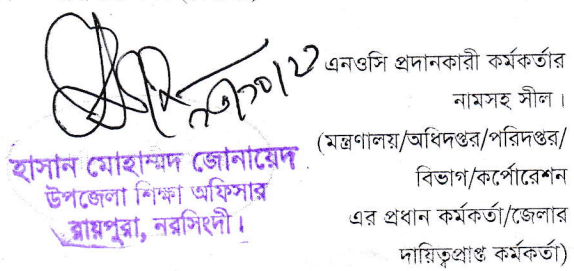 এনওসি প্রদানকারী কর্মকর্তার
নামসহ সীল।
(মন্ত্রণালয়/অধিদপ্তর/পরিদপ্তর/
বিভাগ/কর্পোরেশন
এর প্রধান কর্মকর্তা/জেলার
দায়িত্বপ্রাপ্ত কর্মকর্তা)
হাসান মোহাম্মদ জোনায়েদ
উপজেলা শিক্ষা অফিসার
রায়পুরা, নরসিংদী।